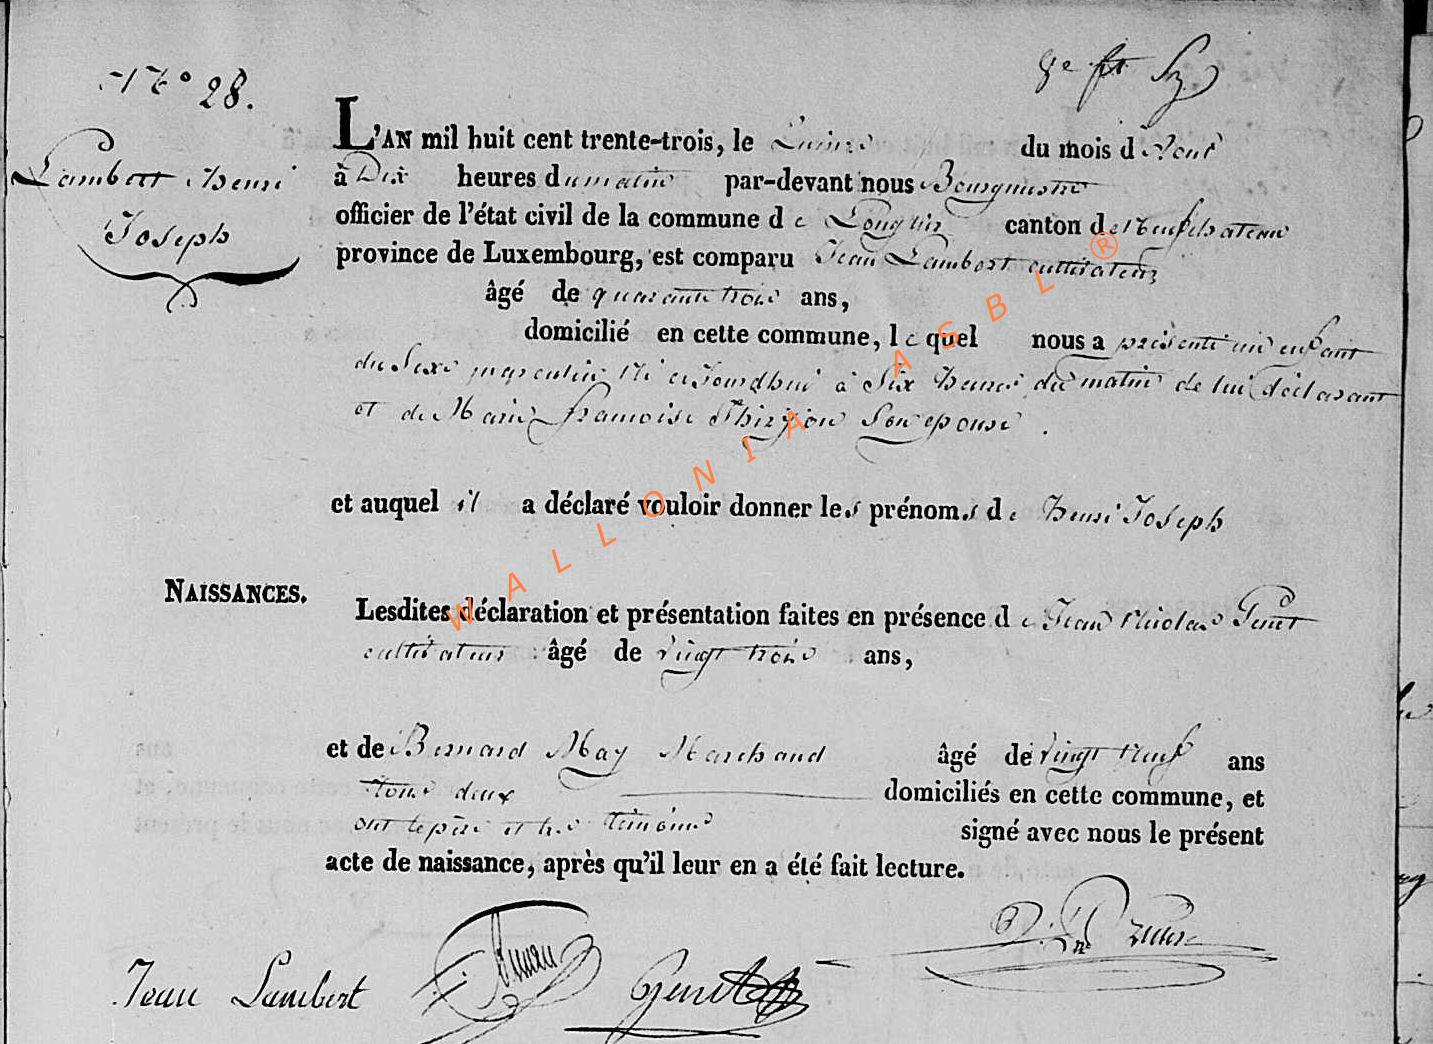 N° 28.
Lambert Henri
Joseph
L'AN mil huit cent trente-trois, le Quinze du mois d'Aout
à Dix heures du matin par-devant nous Bourgmestre
officier de l'état civil de la commune de Longlier canton de Neufchateau
province de Luxembourg, est comparu Jean Lambert cultivateur
âgé de quarante trois ans,
domicilié en cette commune, lequel nous a présenté un enfant
du Sexe masculin né ce Jourdhui à Six heures du matin de lui déclarant
et de Marie françoise Thiry son epouse.
et auquel il a déclaré vouloir donner les prénoms de Henri Joseph
NAISSANCES.
Lesdites déclaration et présentation faites en présence de Jean Nicolas
cultivateur âgé de vingt trois ans,
et de Bernard May Marchand âgé de vingt neuf ans
tous deux domiciliés en cette commune, et
ont le père et les témoins signé avec nous le présent
acte de naissance, après qu'il leur en a été fait lecture.
Jean Lambert
WALLONIA ASBL ®